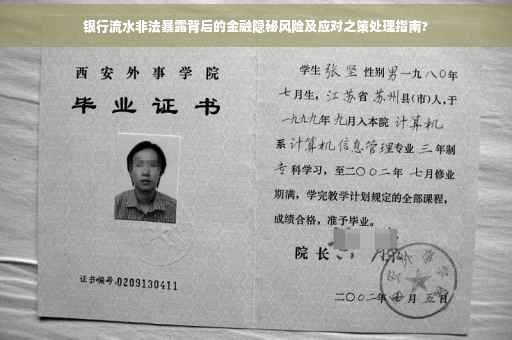 银行流水非法暴露背后的金融隐秘风险及应对之策处理指南?
西安外事学院
毕业证书
证书编号:0209130411
学生 张坚 性别 男 一九八〇年
七月生,江苏省 苏州县(市)人,于
一九九九年 九月入本院 计算机
系 计算机信息管理专业 三 年制
专 科学习,至二〇〇二年 七月修业
期满,学完教学计划规定的全部课程,
成绩合格,准予毕业。
院长
二〇〇二年 月 五日